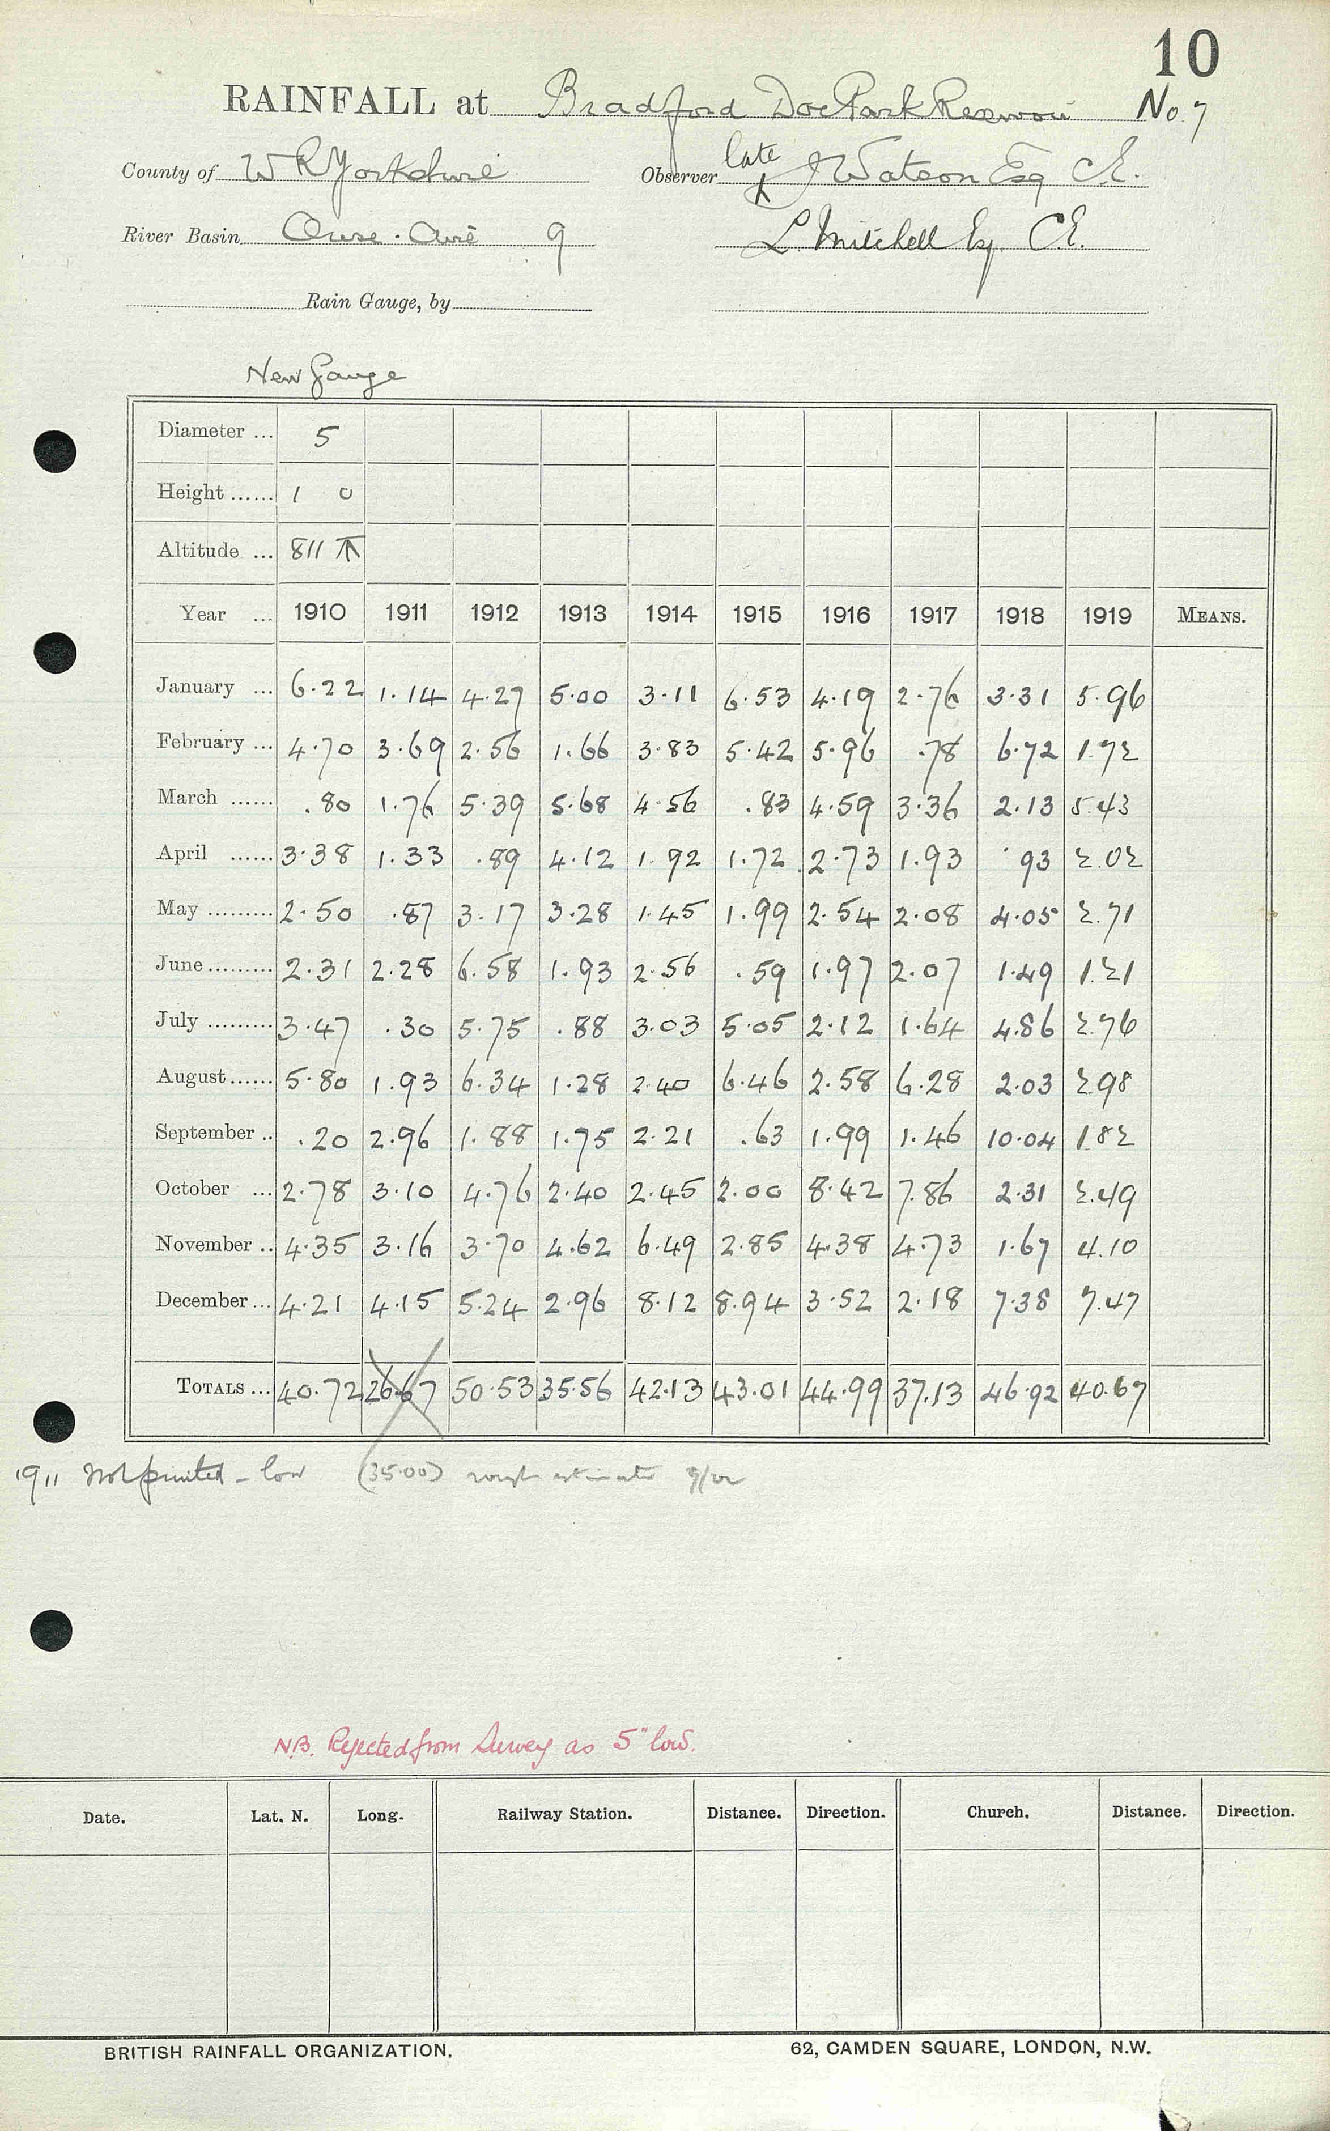 10
RAINFALL at Bradford Doe Park Reservoir No. 7
County of W R Yorkshire Observer late J Watson Esq C.E.
River Basin Ouse . Aire 9 L. Mitchell Esq C.E.
Rain Gauge, by
New Gauge
Diameter ... 5
Height ...... 1 0
Altitude ... 811
Year ... 1910 1911 1912 1913 1914 1915 1916 1917 1918 1919 MEANS.
January ... 6.22 1.14 4.27 5.00 3.11 6.53 4.19 2.76 3.31 5.96
February ... 4.70 3.69 2.56 1.66 3.83 5.42 5.96 .78 6.72 1.72
March ...... .80 1.76 5.39 5.68 4.56 .83 4.59 3.36 2.13 5.43
April ...... 3.38 1.33 .89 4.12 1.92 1.72 2.73 1.93 .93 2.02
May ......... 2.50 .87 3.17 3.28 1.45 1.99 2.54 2.08 4.05 2.71
June ......... 2.31 2.28 6.58 1.93 2.56 .59 1.97 2.07 1.49 1.21
July ......... 3.47 .30 5.75 .88 3.03 5.05 2.12 1.64 4.86 2.76
August ...... 5.80 1.93 6.34 1.28 2.40 6.46 2.58 6.28 2.03 2.98
September .. .20 2.96 1.88 1.75 2.21 .63 1.99 1.46 10.04 1.82
October ... 2.78 3.10 4.76 2.40 2.45 2.00 8.42 7.86 2.31 2.49
November .. 4.35 3.16 3.70 4.62 6.49 2.85 4.38 4.73 1.67 4.10
December ... 4.21 4.15 5.24 2.96 8.12 8.94 3.52 2.18 7.38 7.47
TOTALS ... 40.72 26.67 50.53 35.56 42.13 43.01 44.99 37.13 46.92 40.67
1911 Not printed - low (35.00) rough estimate
N.B. Rejected from Survey as 5" low.
Date. Lat. N. Long. Railway Station. Distance. Direction. Church. Distance. Direction.
BRITISH RAINFALL ORGANIZATION. 62, CAMDEN SQUARE, LONDON, N.W.